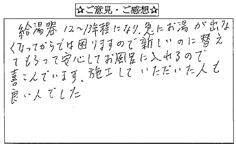 ☆ご意見・ご感想☆
給湯器 12〜13年程になり、急にお湯が出な
くなってからでは困りますので新しいのに替え
てもらって安心してお風呂に入れるので
喜こんでいます。施工していただいた人も
良い人でした